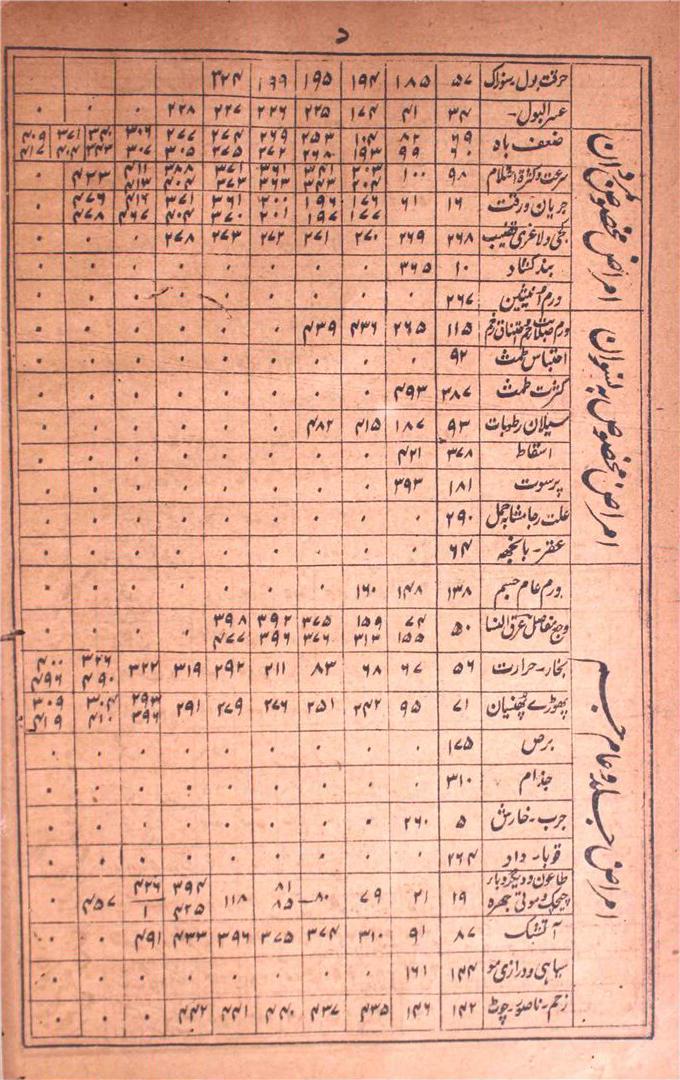 د
حرقت بول۔سوزاک ۵۷ ۱۸۵ ۱۹۴ ۱۹۵ ۱۹۹ ۳۲۴
عسرالبول۔ ۳۴ ۴۱ ۱۷۴ ۲۲۵ ۲۲۶ ۲۲۷ ۲۲۸ ۰ ۰ ۰
امراض مخصوص مرداں
ضعف باہ ۶۹ ۸۲ ۱۰۴ ۲۵۳ ۲۶۹ ۲۷۴ ۲۷۷ ۳۰۶ ۳۴۰ ۳۷۱ ۴۰۹
۶۰ ۹۹ ۱۹۳ ۲۶۸ ۲۷۲ ۲۷۵ ۳۰۵ ۳۰۷ ۳۴۳ ۴۰۴ ۴۱۷
سرعت وکثرت احتلام ۹۸ ۱۰۰ ۲۰۳ ۳۴۱ ۳۶۱ ۳۷۱ ۳۸۷ ۴۱۱ ۴۲۳ ۰
۲۰۴ ۳۴۳ ۳۶۳ ۳۷۳ ۴۰۴ ۴۱۳
جریان ورقت ۱۶ ۶۱ ۱۷۶ ۱۹۶ ۲۰۰ ۳۶۱ ۳۷۱ ۴۱۶ ۴۷۶ ۰
۱۷۷ ۱۹۷ ۲۰۱ ۳۷۰ ۴۰۴ ۴۶۷ ۴۷۷
کجی ولاغری قضیب ۲۶۸ ۲۶۹ ۲۷۰ ۲۷۱ ۲۷۲ ۲۷۳ ۲۷۸ ۰ ۰ ۰
بندکشاد ۱۰ ۳۶۵ ۰ ۰ ۰ ۰ ۰ ۰ ۰ ۰
ورم انثیین ۲۶۷ ۰ ۰ ۰ ۰ ۰ ۰ ۰ ۰ ۰
امراض مخصوص بہ نسواں
ورم صلابت رحم اختناق رحم ۱۱۵ ۲۶۵ ۴۳۶ ۴۳۹ ۰ ۰ ۰ ۰ ۰ ۰
احتباس طمث ۹۲ ۰ ۰ ۰ ۰ ۰ ۰ ۰ ۰ ۰
کثرت طمث ۲۸۷ ۴۹۳ ۰ ۰ ۰ ۰ ۰ ۰ ۰ ۰
سیلان رطوبات ۹۳ ۱۸۷ ۴۱۵ ۴۸۲ ۰ ۰ ۰ ۰ ۰ ۰
اسقاط ۳۷۸ ۴۲۱ ۰ ۰ ۰ ۰ ۰ ۰ ۰ ۰
پرسوت ۱۸۱ ۳۹۳ ۰ ۰ ۰ ۰ ۰ ۰ ۰ ۰
علت رجا مشابہ حمل ۲۹۰ ۰ ۰ ۰ ۰ ۰ ۰ ۰ ۰ ۰
عقر۔بانجھہ ۶۴ ۰ ۰ ۰ ۰ ۰ ۰ ۰ ۰ ۰
امراض جلد وعام جسم
ورم عام جسم ۱۳۸ ۱۴۸ ۱۶۰ ۰ ۰ ۰ ۰ ۰ ۰ ۰
وجع مفاصل عرق النسا ۵۰ ۷۴ ۱۵۹ ۳۷۵ ۳۹۲ ۳۹۸ ۰ ۰ ۰ ۰
۱۵۵ ۳۱۳ ۳۷۶ ۳۹۶ ۴۷۷
بخار۔حرارت ۵۶ ۶۷ ۶۸ ۸۳ ۲۱۱ ۲۹۲ ۳۱۹ ۳۲۲ ۳۲۶ ۴۰۰
۴۹۰ ۴۹۶
پھوڑے پھنسیاں ۷۱ ۹۵ ۲۴۲ ۲۵۱ ۲۷۶ ۲۷۹ ۲۹۱ ۲۹۳ ۳۰۴ ۳۰۹
۳۹۶ ۴۱۰ ۴۱۹
برص ۱۷۵ ۰ ۰ ۰ ۰ ۰ ۰ ۰ ۰ ۰
جذام ۳۱۰ ۰ ۰ ۰ ۰ ۰ ۰ ۰ ۰ ۰
جرب۔خارش ۵ ۲۶۰ ۰ ۰ ۰ ۰ ۰ ۰ ۰ ۰
قوبا۔داد ۲۶۴ ۰ ۰ ۰ ۰ ۰ ۰ ۰ ۰ ۰
طاعون ودیگر وبا ۸۱ ۳۹۴ ۴۲۶
چیچک وموتی جھرہ ۱۹ ۲۱ ۷۹ ۸۰ ۸۵ ۱۱۸ ۴۲۵ ۱ ۴۵۷ ۰
آتشک ۸۷ ۹۱ ۳۱۰ ۳۷۴ ۳۷۵ ۳۹۶ ۴۳۳ ۴۹۱ ۰ ۰
سیاہی ودرازی مو ۱۴۴ ۱۶۱ ۰ ۰ ۰ ۰ ۰ ۰ ۰ ۰
زخم۔ناصور۔چوٹ ۱۴۲ ۱۴۶ ۴۳۵ ۴۳۷ ۴۴۰ ۴۴۱ ۴۴۲ ۰ ۰ ۰